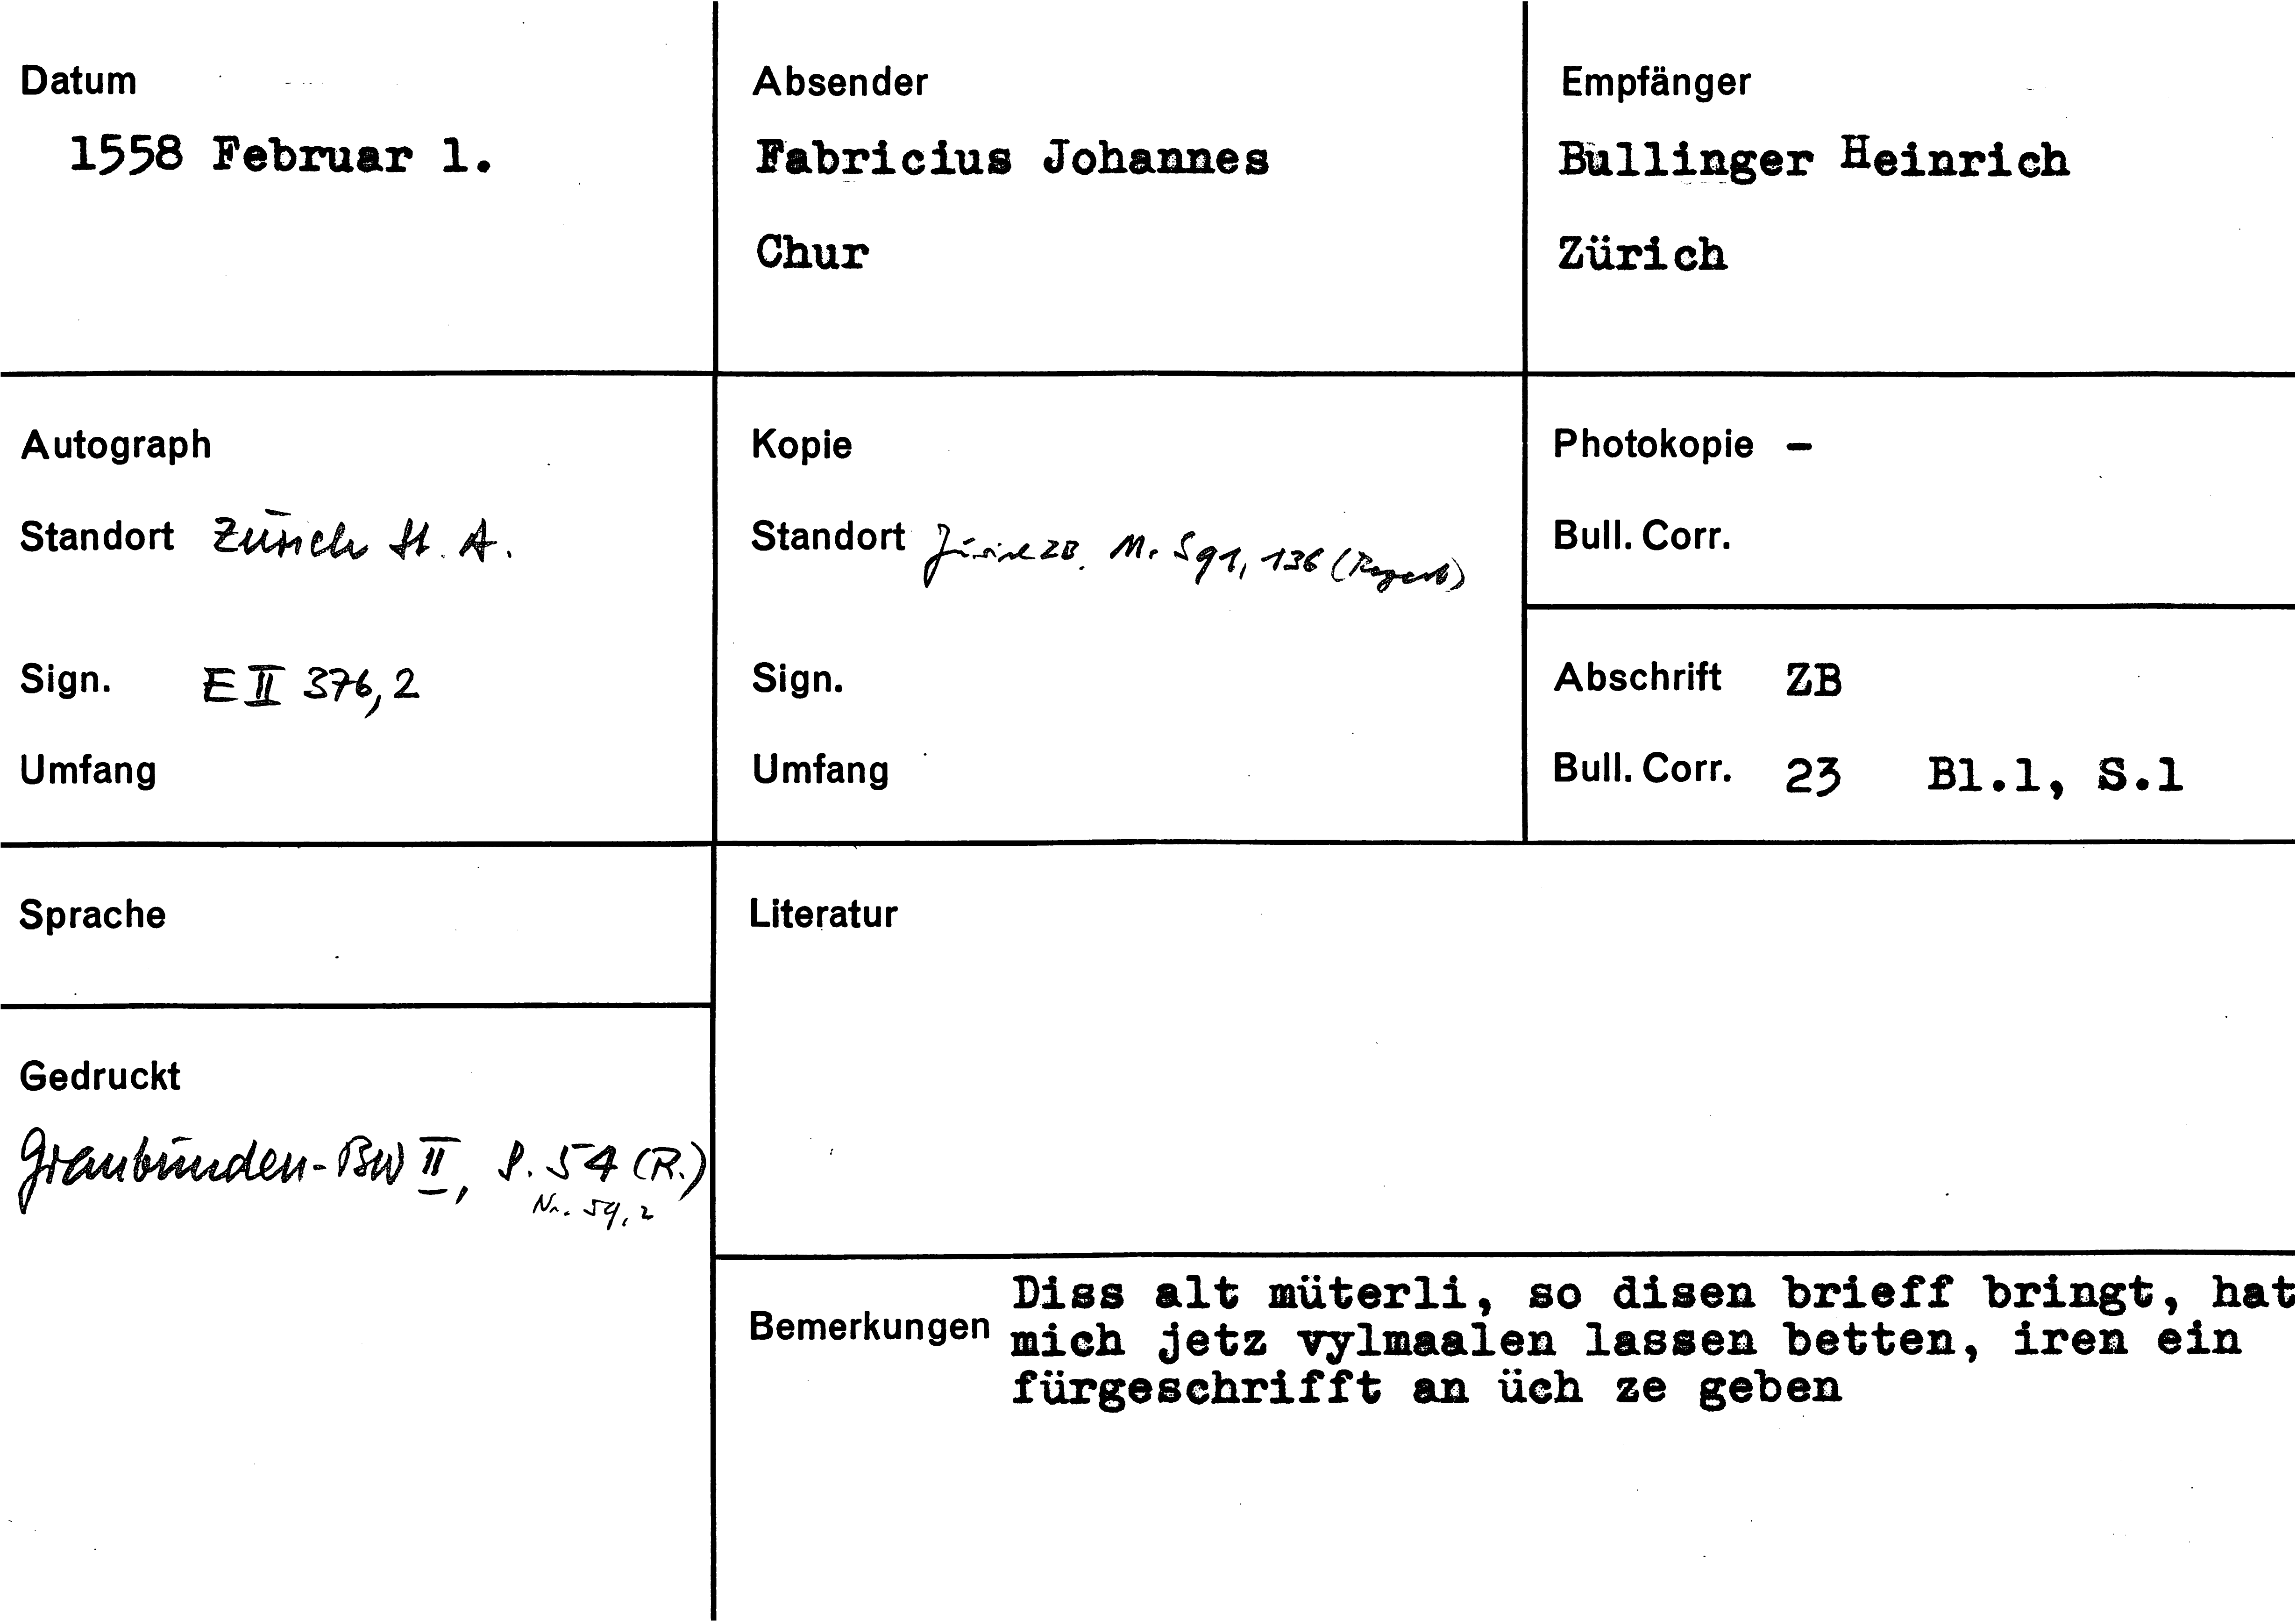 Datum
1558 Februar 1.
Absender
Fabricius Johannes
Chur
Empfänger
Bullinger Heinrich
Zürich
Autograph
Standort Zürich St. A.
Sign. E II 376, 2
Umfang
Kopie
Standort Zürich ZB. Ms S 91, 136 (Regest)
Sign.
Umfang
Photokopie -
Bull. Corr.
Abschrift ZB
Bull. Corr. 23 Bl.1, S.1
Sprache
Literatur
Gedruckt
Graubünden-BW II, S. 54 (R.)
Nr. 59, 2
Bemerkungen
Diss alt müterli, so disen brieff bringt, hat
mich jetz vylmaalen lassen betten, iren ein
fürgeschrifft an üch ze geben